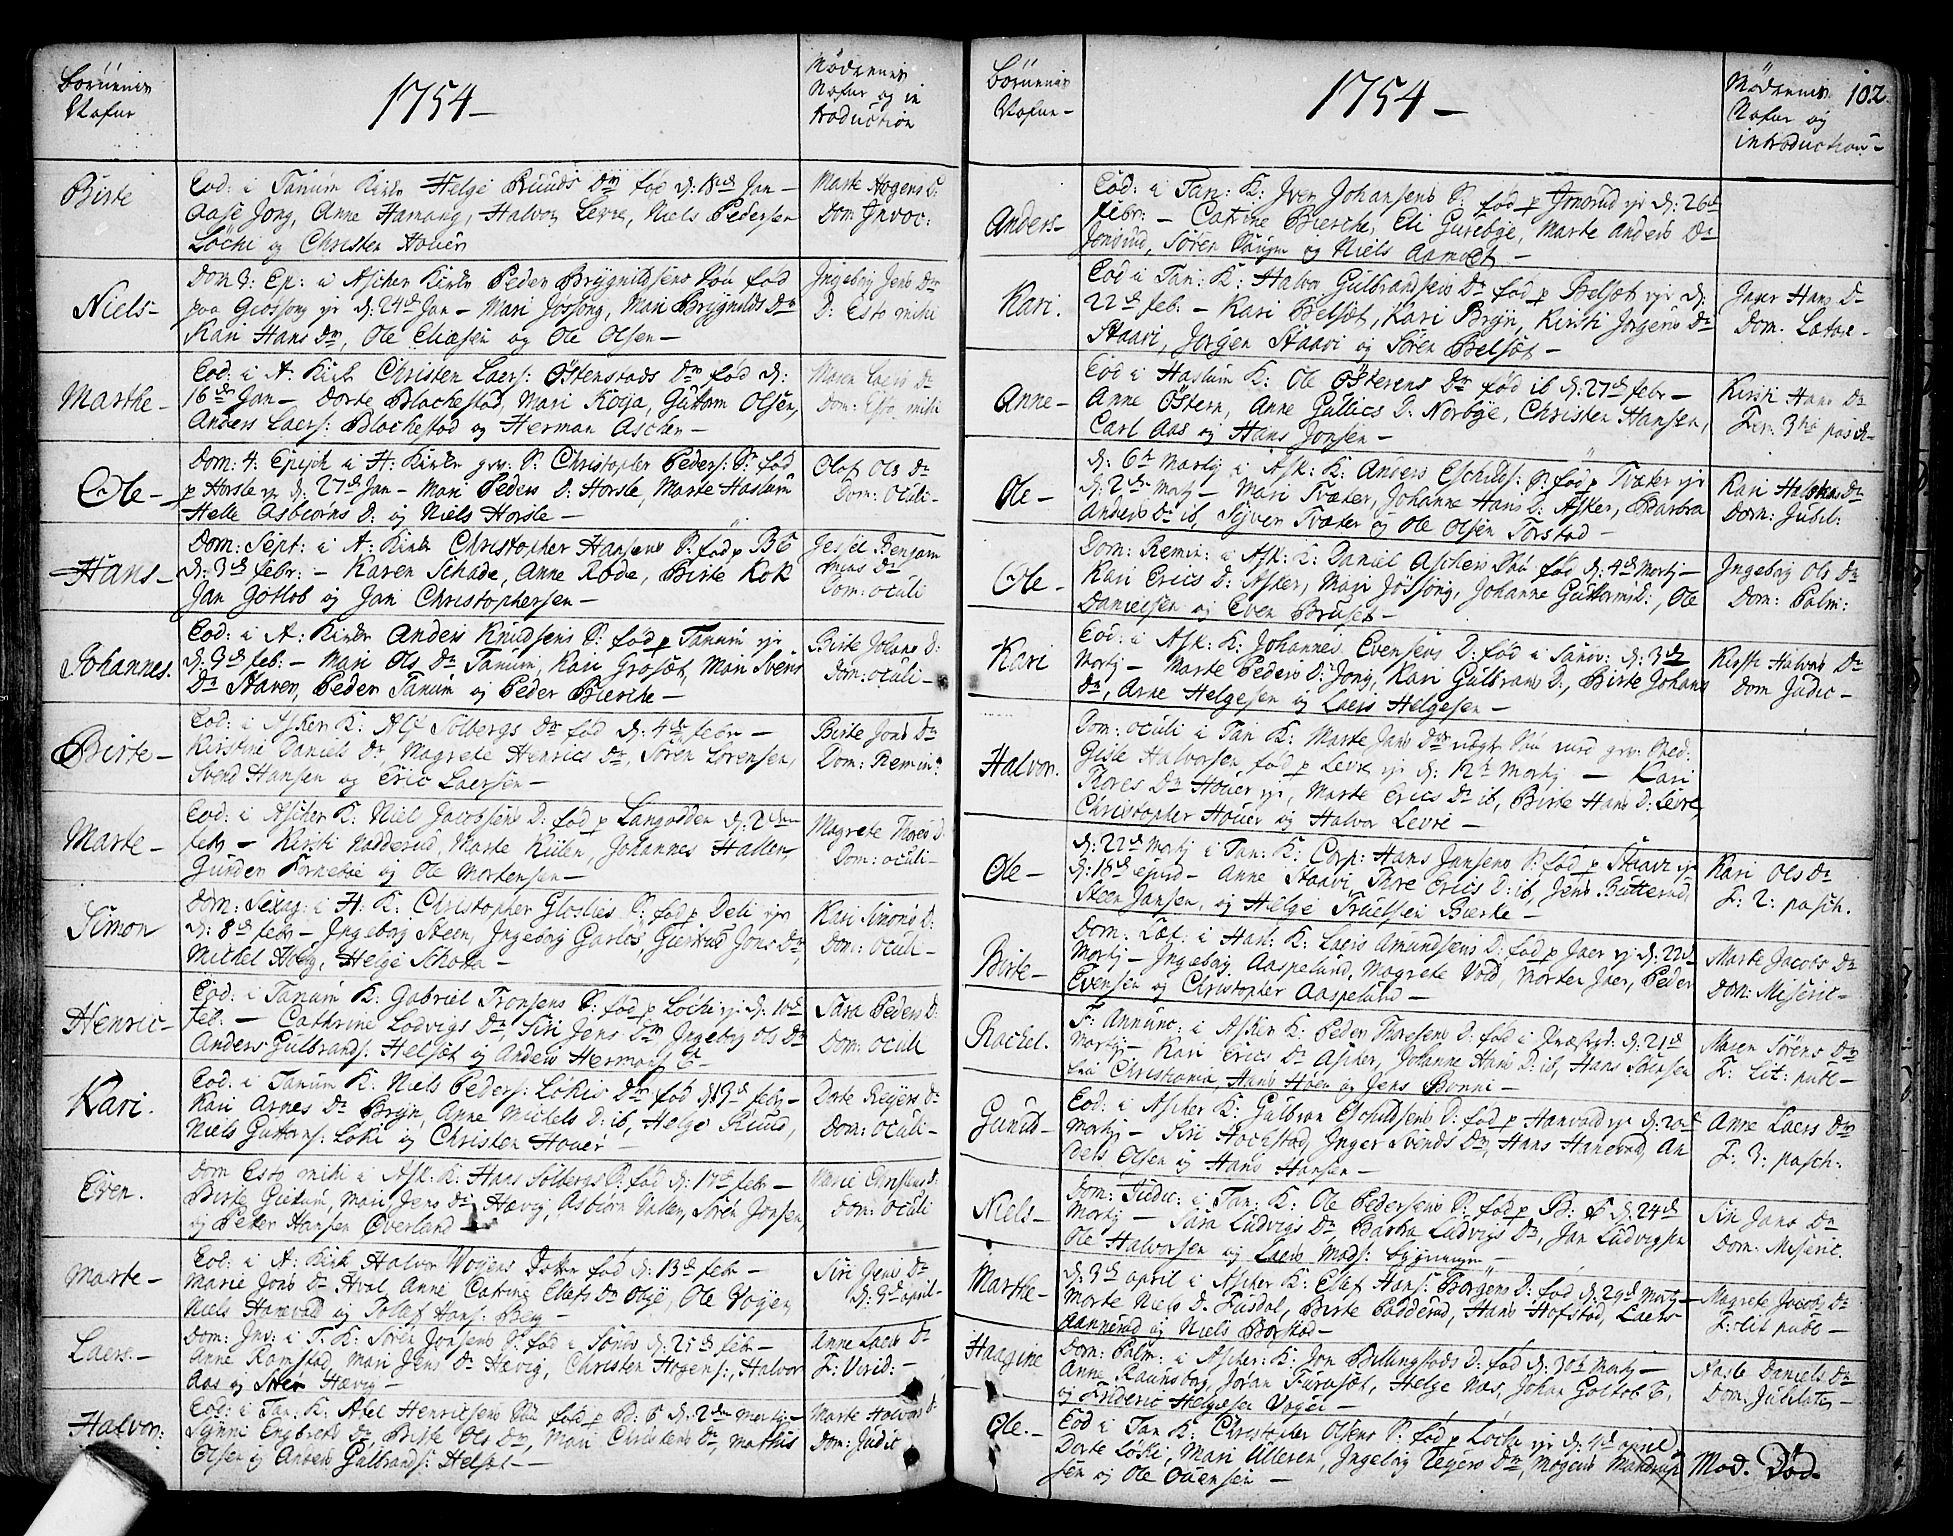 Børnenes
Nafne
1754-
Mødrenes
Nafne og in
troduction
Birte
Eod: i Tanum Kirke Helge Ruuds Dr fød d: 18de Jan-
Aase Jong, Anne Hamang, Halvor Levre, Niels Pedersen
Løchi og Christen Houer
Marte Hogens D:
Dom: Invoc:
Niels-
Dom 3: Ep: i Ascher Kirke Peder Brygnildsens Søn fød
paa Grossong d: 24de Jan- Mari Jossong, Mari Brygnilds Dr
Kari Hans Dr, Ole Eliasen og Ole Olsen-
Ingebor Jens Dr
D: Esto mihi
Marthe-
Eod: i A: Kirke Christen Laers: Østenstads Dr fød d:
16de Jan- Dorte Blachestad, Mari Koja, Guttorm Olsen,
Anders Laers: Blochestad og Herman Ascher-
Maren Laers Dr
Dom: Esto mihi
Ole-
Dom: 4: Epiph i H: Kirke Christopher Peders: S: fød
p Horsle d: 27de Jan- Mari Peders D: Horsle, Marte Haslum
Helle Asbiørns D: og Niels Horsle-
Olaf Ols Dr
Dom: oculi-
Hans-
Dom: Sept: i A: Kirke Christopher Hansens S: fød p
d: 3de febr:- Karen Schade, Anne Rode, Birte Kok
Jan Gotlob og Jan Christophersen-
Dom: oculi
Johannes.
Eod: i A: Kirke Anders Knudsens S: fød p Tanum
d: 3de feb:- Mari Ols Dr Tanum, Kari Grosøt, Mari Svens
Dr Staver, Peder Tanum og Peder Bierche-
Birte Johans D:
Dom: oculi-
Birte-
Eod: i Ascher K: Alf Solbergs Dr fød d: 4de febr-
Kirstine Daniels Dr, Magrete Henrics Dr, Søren Sørensen,
Svend Hansen og Eric Laersen-
Birte Jons Dr
Dom: Remin:
Marte-
Eod: i Ascher K: Niel Jacobsens D: fød p Langodden d: 2den
febr- Kirsti Nadderud, Marte Kiilen, Johannes Hallen,
Gunder Kornebie og Ole Mortensen-
Magrete Thores D
Dom: oculi-
Simon
Dom: Sexag: i H: K: Christopher S: fød p Deli
d: 8de febr- Ingebor Steen, Ingebor Garløs, Giertrud Jons Dr,
Michel Helge Schotta-
Kari Simons D:
Dom: oculi-
Henric-
Eod: i Tanum K: Gabriel Tronsens S: fød p Løchi d: 10de
feb:- Cathrine Lodvigs Dr, Siri Jens Dr Ingebor Ols Dr
Anders Gulbrands: Helsøt og Anders Hermans:
Sara Peders D:
Dom: oculi
Kari.
Eod: i Tanum K: Niels Peders: Løkis Dr fød d: 13de febr-
Kari Arnes Dr Bryn, Anne Michels D: ib, Helge Ruud,
Niels Guttorms: Løki og Christen Houer-
Dorte Reyers Dr
Dom: oculi-
Even.
Dom Esto mihi i Ask: K: Hans Solbergs S: fød d: 17de febr-
Birte Gietum, Mari Jens Dr Hævig, Asbiørn Vallen, Søren Jonsen,
og Peter Hansen Overland
Marie Christens D:
Dom: oculi
Marte-
Eod: i A: Kirk Halvor Vøyens Datter fød d: 13de febr-
Marie Jons Dr Hval, Anne Catrine Elefs Dr Ole Vøyen
Niels Hanevold og Hans: Berg
Siri Jens Dr
d: 3de april-
Laers.-
Dom: Inv: i T: K: Søren Jonsens S: fød i d: 25de febr-
Anne Ramstad, Mari Jens Dr Hævig, Christen Hogens:, Halvor
Aas og Søren Hævig-
Anne Laers Dr
F: Virid:-
Halvor:
Eod: i Tan: K: Abel Henricsens fød p d: 2den Martj-
Engbrets Dr, Birte Ols Dr, Mari Christens Dr, Mathis
Olsen og Anders Gulbrands: Helsøt-
Marte Halvors D
Dom: Judic
Børnenes
Nafne-
1754-
Mødrenes
Nafne og
introduction-
102
Anders-
Eod: i Tan: K: Iver Johansens S: fød p Jonsrud d: 26de
febr:- Catrine Bierche, Eli Gurebye, Marte Anders Dr
Jonsrud, Søren og Niels Aamodt-
Kari.
Eod i Tan: K: Halvor Gulbrandsens Dr fød p Belsøt d:
22de feb:- Kari Belsøt, Kari Bryn, Kirsti Jørgens Dr
Staavi, Jørgen Staavi og Søren Belsøt-
Inger Hans Dr
Dom: Lætar-
Anne-
Eod i Haslum K: Ole Østerens Dr fød ib d: 27de febr-
Anne Østern, Anne Gullics D: Norbye, Christen Hansen,
Carl Aas og Hans Jonsen-
Kirsti Hans Dr
Fer: 3tia pasch-
Ole-
d: 6te Martj i Ask: K: Anders Eschilds: S: fød p Tvæter
d: 2den Martj- Mari Tvæter, Johanne Hans D: Asker, Barbra
Anders Dr ib, Syver Tvæter og Ole Olsen Torstad-
Kari Halvors Dr
Dom: Jubil:
Ole-
Dom: Remin: i Ask: K: Daniel Aschers fød d: 4de Martj-
Kari Erics D: Asker, Mari Jossong, Johanne Guttorms D:, Ole
Danielsen og Even Bruset-
Ingebor Ols Dr
Dom: Palm:
Kari
Eod: i Ask: K: Johannes Evensens D: fød i d: 3de
Martj- Marte Peders D: Jong, Kari Gulbrans D:, Birte Johans
Dr, Arne Helgesen og Laers Helgesen-
Kirsti Halvors Dr
Dom Judic-
Halvor.
Dom: oculi i Tan K: Marte Jans Dr Søn
Gisle Halvorsen fød p Levre d: 12te Martj- Kari
Thores Dr Houer, Marte Erics Dr ib, Birte Hans D: Levre,
Christopher Houer og Halvor Levre-
Ole-
d: 22de Martj i Tan: K: Corp: Hans Jansens S: fød p Staavi
d: 18de ejusd- Anne Staavi, Thore Erics D: ib, Jens Butterud,
Steen Jansen, og Helge Truelsen Bærke-
Kari Ols Dr
F: 2: pasch.
Birte-
Dom: Læt: i Hasl: K: Laers Amundsens D: fød p Jaer d: 22de
Martj- Ingebor Aaspelund, Magrete Vold, Morten Jaer, Peder
Evensen og Christopher Aaspelund-
Marte Jacobs Dr
Dom: Miseric-
Rachel.
F: Annunc: i Asker K: Peder Thoresens D: fød i d: 21de
Martj- Kari Erics Dr Ascher, Johanne Hans D: ib, Hans Sørensen
fra Christiania Hans Hoen og Jens Bonni-
Maren Sørens Dr
F: Lit: publ-
Gunild-
Eod: i Ascher K: Gulbran Eschildsens D: fød p Hanvold d: 20de
Martj- Siri Hogstad, Inger Svends Dr, Hans Hanevold, An
ders Olsen og Hans Hansen-
Anne Laers Dr
F: 3: pasch:
Niels-
Dom: Judic: i Tan: K: Ole Pedersens S: fød p d: 24de
Martj- Sara Ludvigs Dr, Barbra Ludvigs Dr, Jan Ludvigsen
Ole Halvorsen og Laers Mads:
Siri Jans Dr
Dom: Miseric.
Marthe-
d: 3de april i Ascher K: Elef Hans: Børgens D: fød d: 29de Martj-
Marte Niels D. Fusdal, Birte Padderud, Hans Hofstad, Laers
Aannerud og Niels Borstad-
Magrete Jacobs Dr
F: Lit publ-
Haagine
Dom: Palm: i Ascher: K: Jon Billingstads D: fød d: 30te Martj-
Anne Raunsborg, Joran Furusøt, Helge Nas, Johan Gotlob
og Frideric Helgesen Vøyen-
Aaste Daniels Dr
Dom: Jubilate-
Ole.-
Eod i Tan K: Christopher Olsens S: fød p Løchi d: 4de april
Dorte Løski, Mari Ulleren, Ingebor Reyers Dr, Mogens
sen og Ole Ouensen-
Mod. Død-